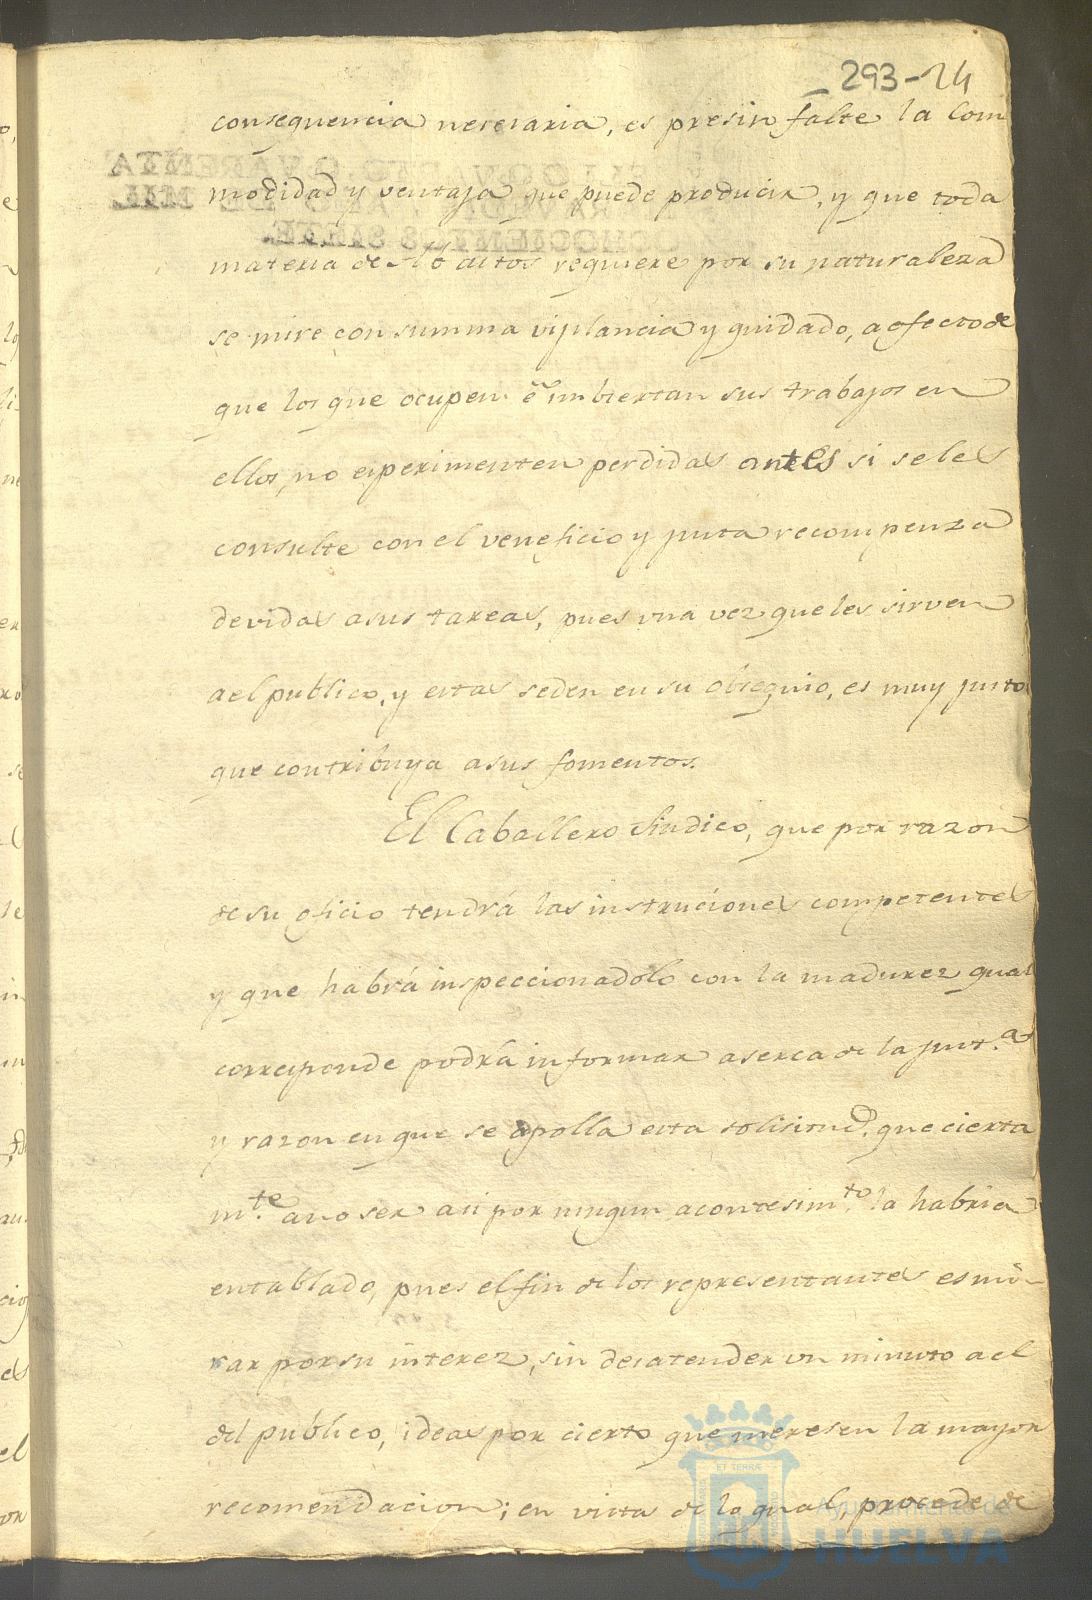 293-24
consequencia nesesaria, es presin falte la Com
modidad y ventaja que puede producir, y que toda
materia de Abastos requiere por su naturaleza
se mire con summa vijilancia y quidado, a efecto de
que los que ocupen è imbiertan sus trabajos en
ellos, no esperimenten perdidas antes si se les
consulte con el veneficio y justa recompenza
devidas asus tareas, pues una vez que les sirven
a el publico, y estas seden en su obsequio, es muy justo
que contribuya asus fomentos.
El Caballero Sindico, que por razon
de su oficio tendrá las instruciones competentes
y que habrá inspeccionadolo con la madurez qual
corresponde podrá informar aserca de la just.ª
y razon en que se apolla esta solisitud, que cierta
m.te ano ser asi por ningun acontesim.to la habria
entablado, pues el fin de los representantes es mi-
rar por su interez, sin desatender un minuto a el
del publico, ideas por cierto que meresen la mayor
recomendacion; en vista de lo qual, procede de
Ayuntamiento de
HUELVA